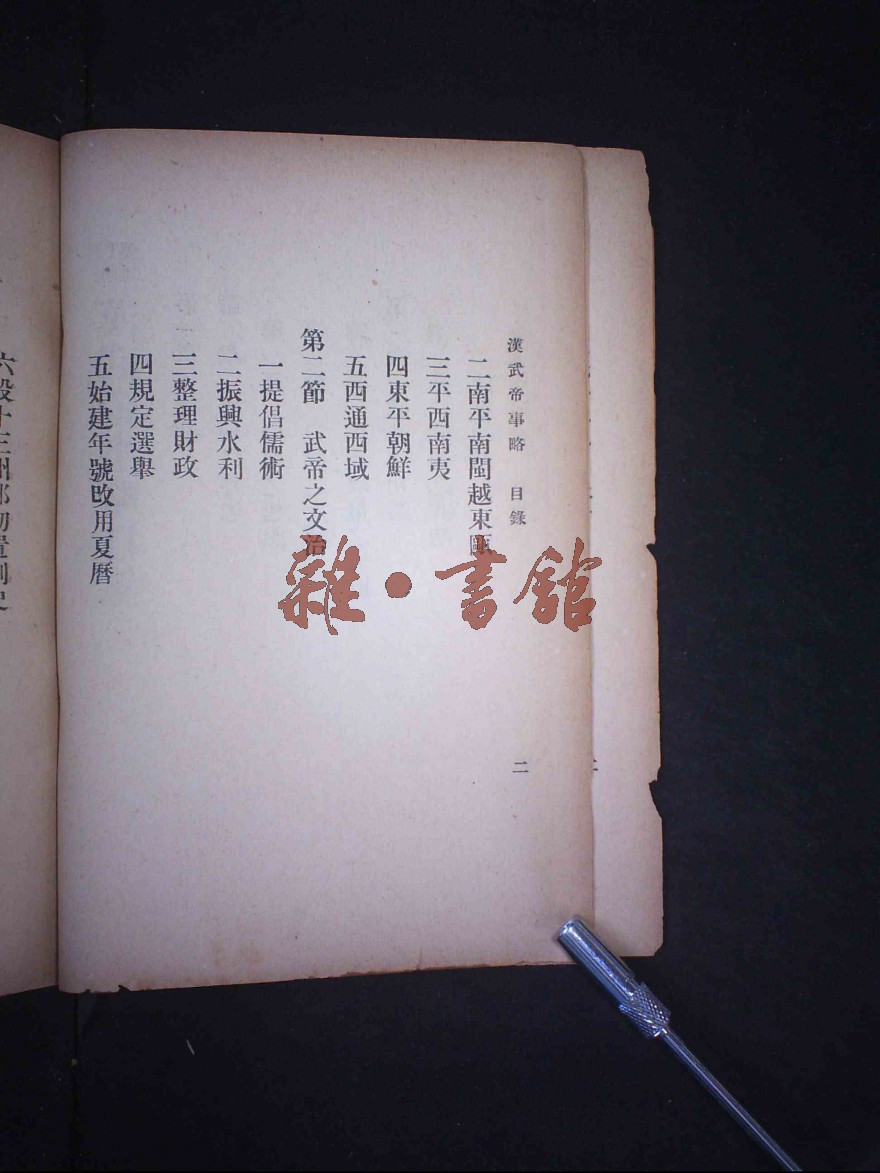 漢武帝事略 目錄
二南平南閩越東甌
三平西南夷
四東平朝鮮
五西通西域
第二節 武帝之文治
一提倡儒術
二振興水利
三整理財政
四規定選舉
五始建年號改用夏曆
二
雜·書館